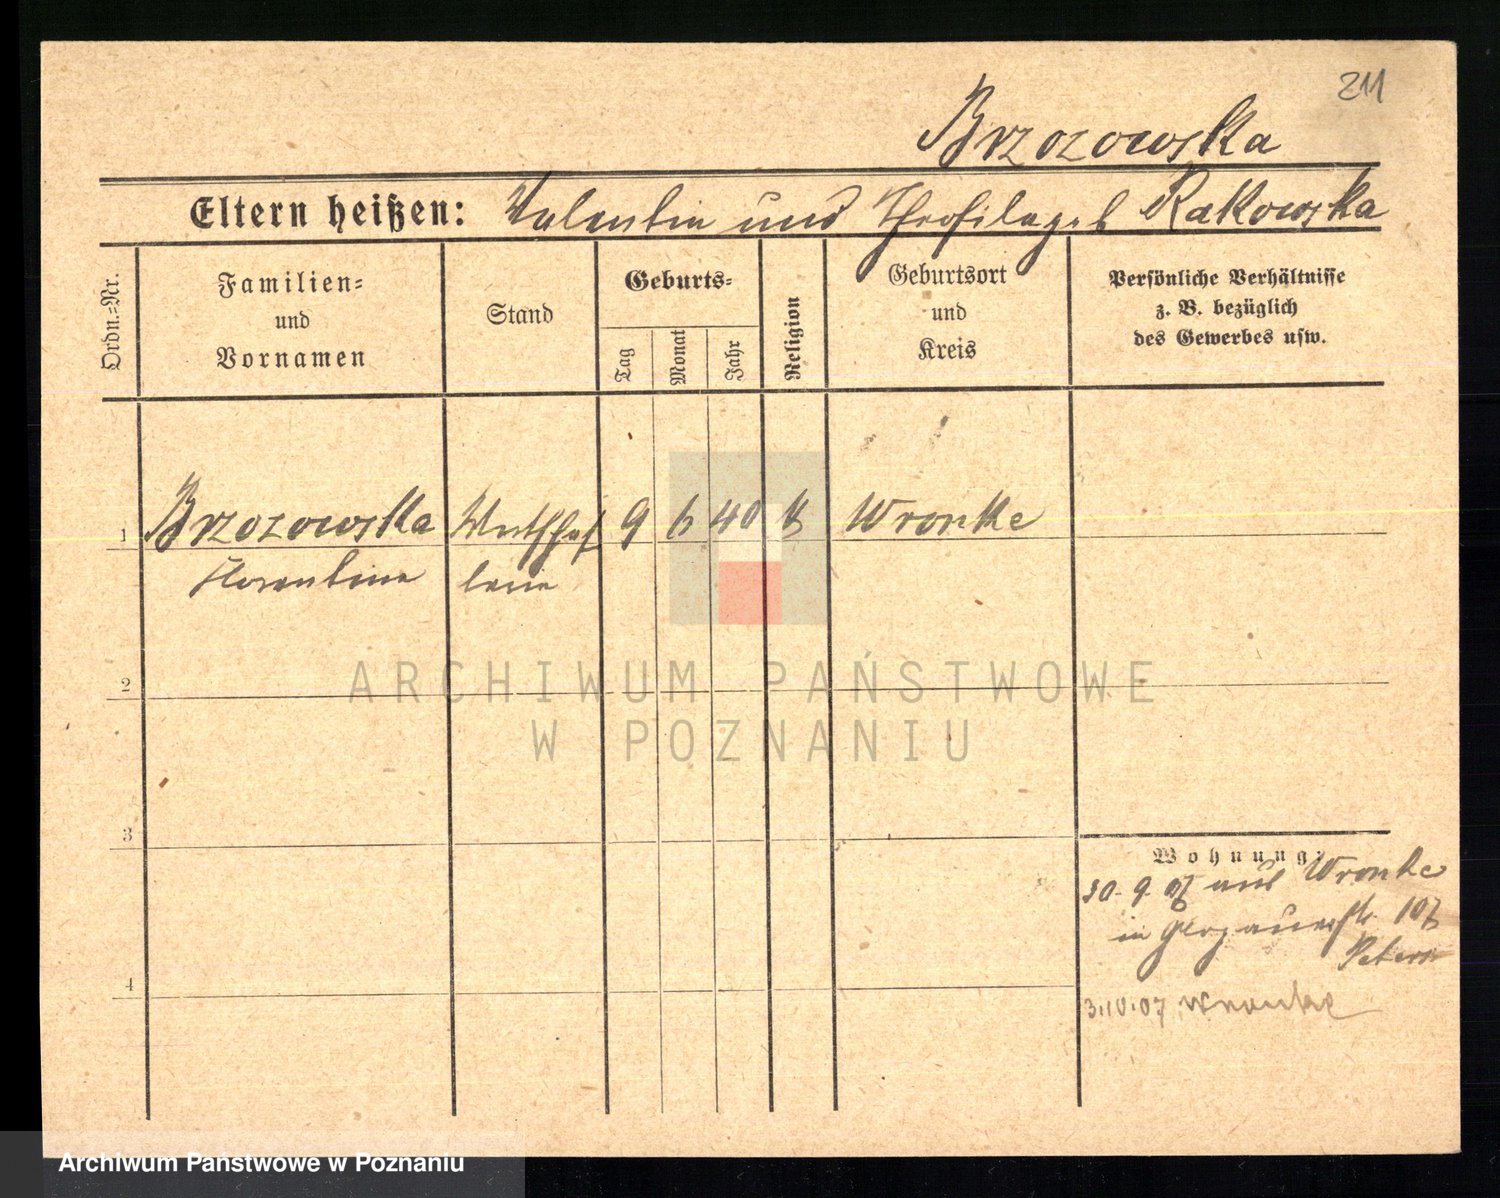 211
Brzozowska
Eltern heißen: Valentin und Theofila geb Rakowska
Ordn.=Nr.
Familien=
und
Vornamen
Stand
Geburts=
Tag
Monat
Jahr
Religion
Geburtsort
und
Kreis
Persönliche Verhältnisse
z. B. bezüglich
des Gewerbes usw.
1 Brzozowska Wirthschaf 9 6 40 k Wronke
Florentine terin
2
ARCHIWUM PAŃSTWOWE
W POZNANIU
3
Wohnung:
30. 9. 07 aus Wronke
in Glogauerstr. 107
Peters
4
3.10.07 Wronke
Archiwum Państwowe w Poznaniu